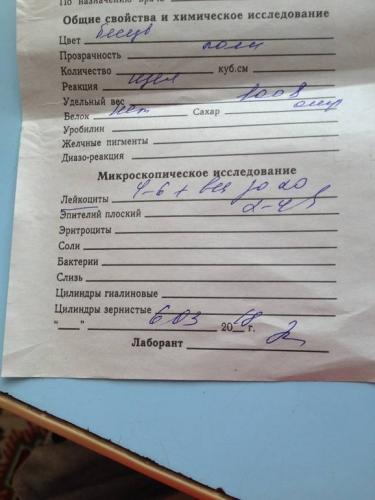 По назначению врача
Общие свойства и химическое исследование
Цвет бесцв
Прозрачность полн
Количество куб.см
Реакция щел
Удельный вес 1008
Белок нет Сахар отр
Уробилин
Желчные пигменты
Диазо-реакция
Микроскопическое исследование
Лейкоциты 4-6 + до 20
Эпителий плоский 2-4
Эритроциты
Соли
Бактерии
Слизь
Цилиндры гиалиновые
Цилиндры зернистые
"___" 603 2018 г.
Лаборант